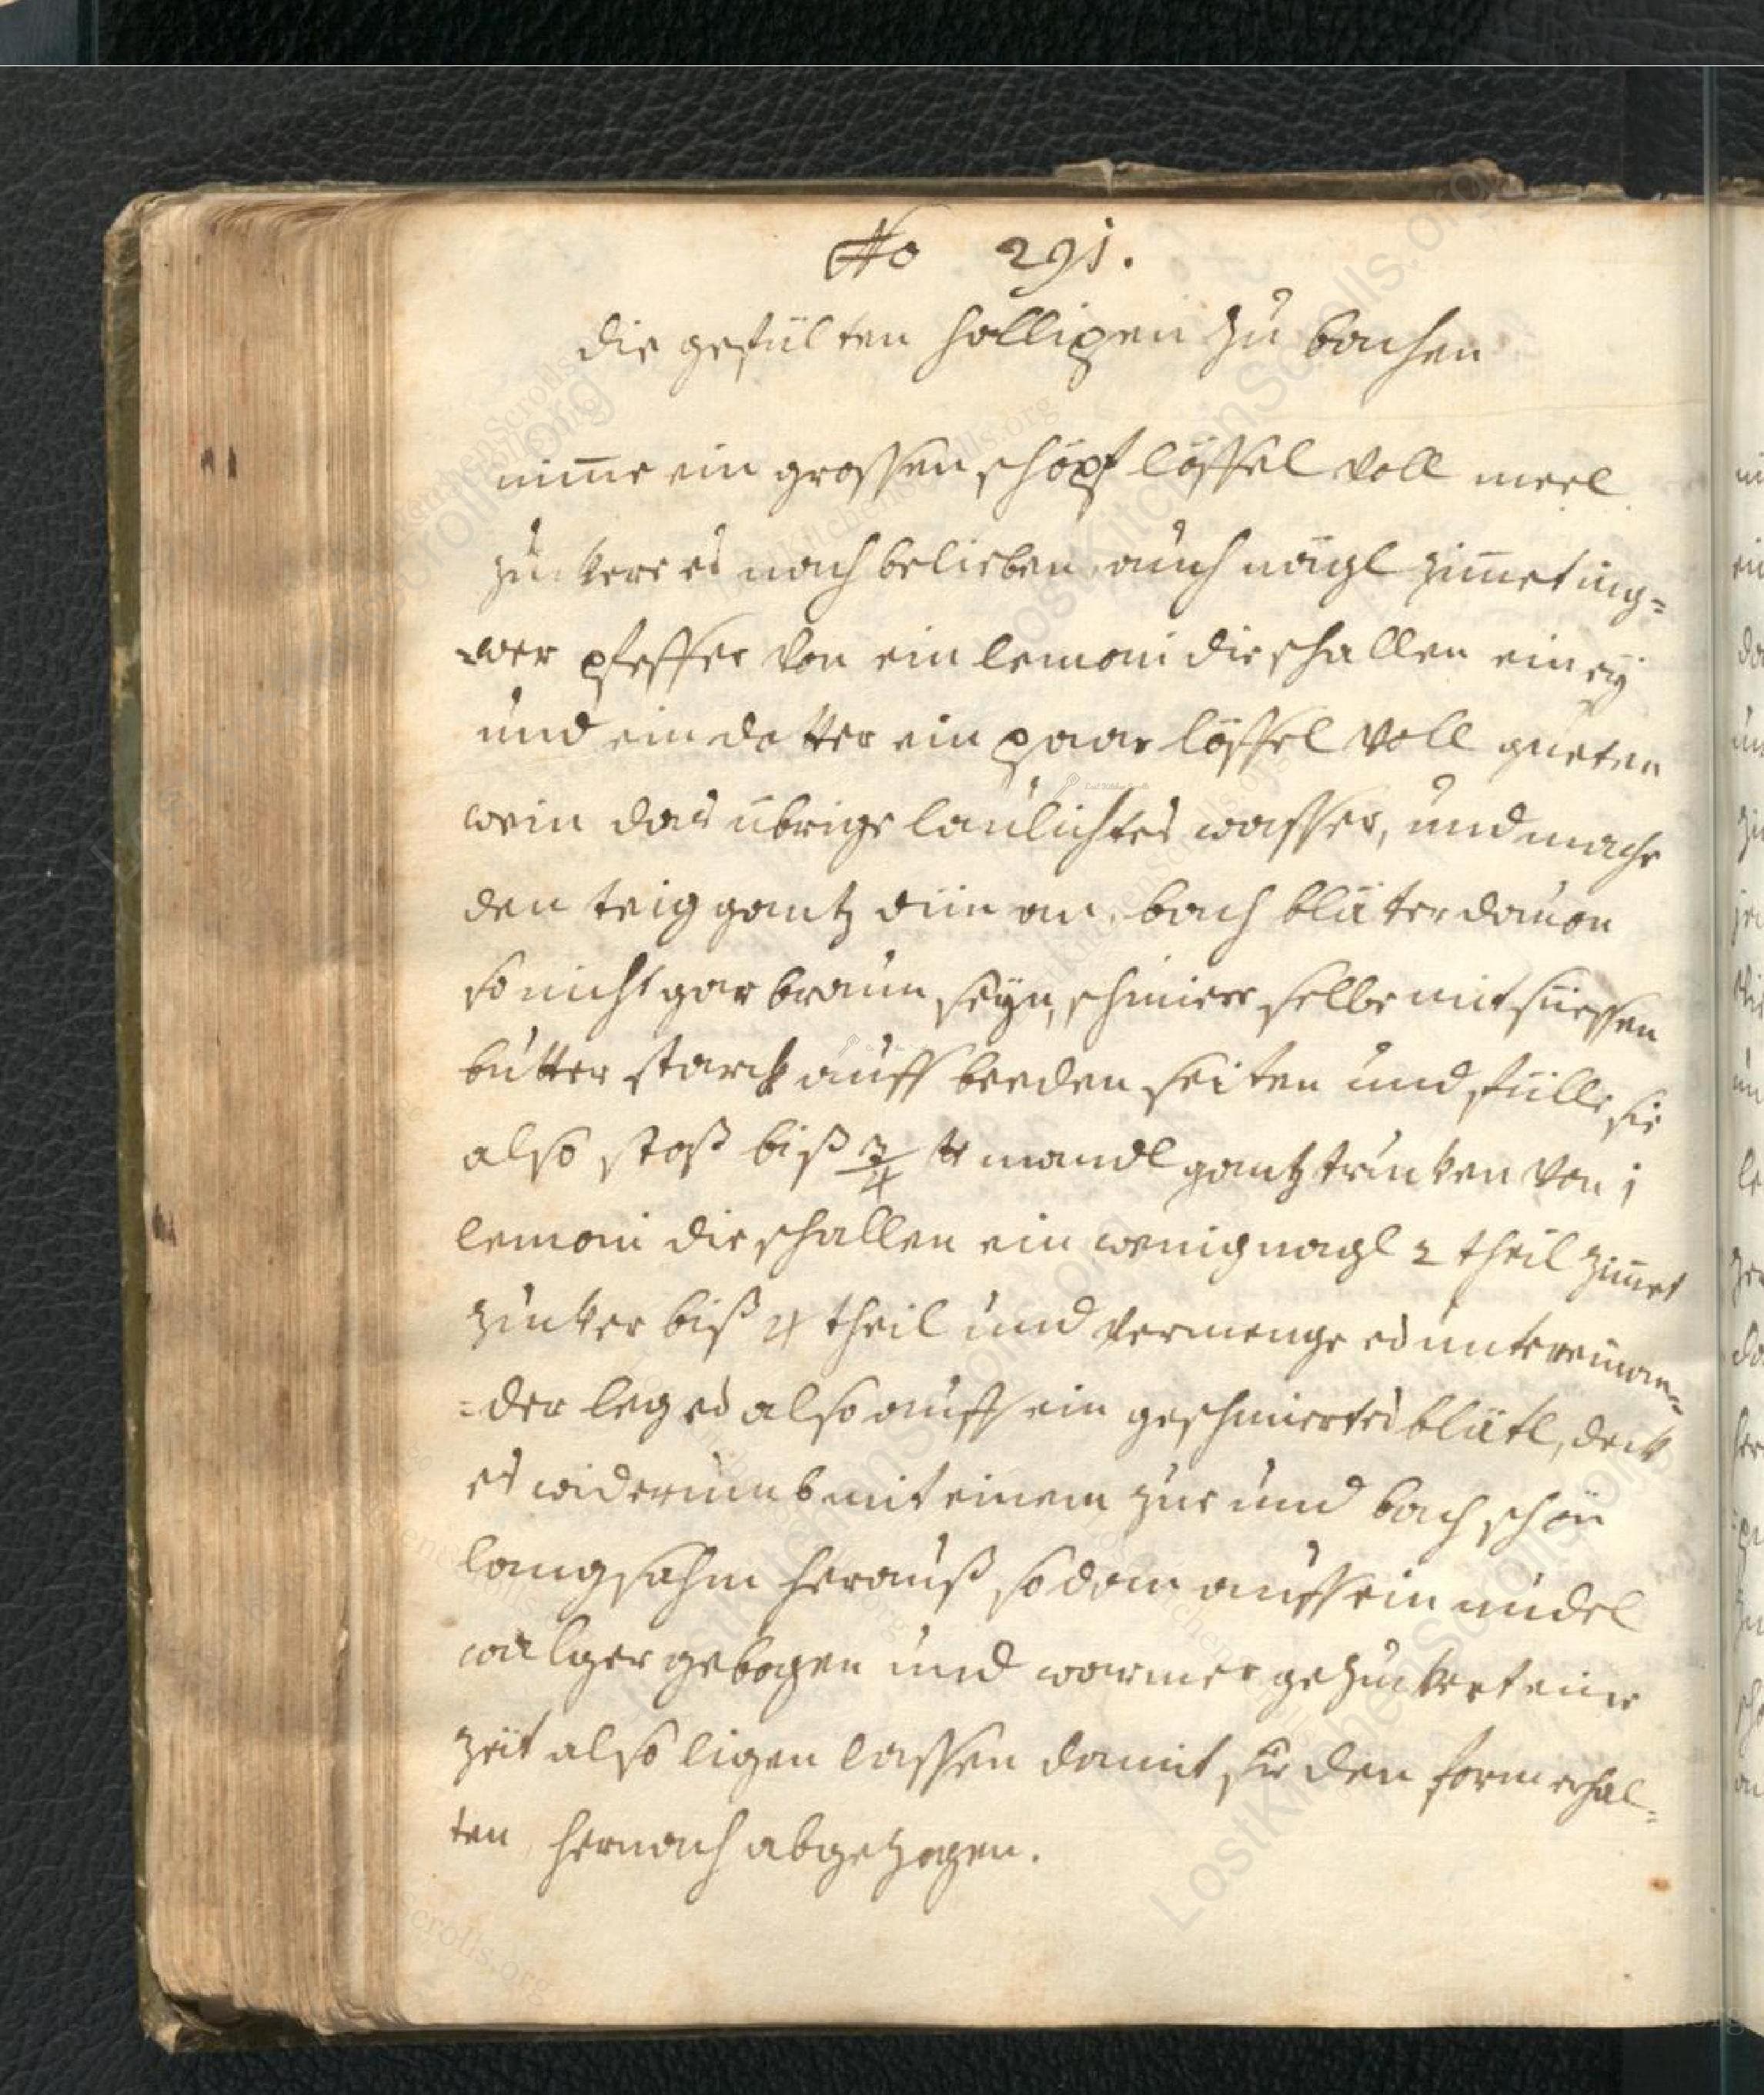 No 291.
die gefülten hollipen zu bachen
nim̄e ein grossen schöpf löffel voll meel
zuckere es nach belieben auch nägl zim̄et ing=
=wer pfeffer von ein lemoni die schallen ein eÿ
und ein dotter ein paar löffel voll gueten
wein das übrige laulichtes wasser, und mache
den teig gantz din an, bach bläter davon
so nicht gar braun seyn, schmiere selbe mit süessen
butter starck auff beeden seiten und fülle sie
also stoß biß 3/4 ℔ mandl gantz trucken von 1
lemoni die schallen ein wenig nagl 2 theil zim̄et
zucker biß 4 theil und vermenge es untereinan=
=der leg es also auff ein geschmiertes blätl, deck
es widerumb mit einem zue und bach schön
langsahm herauß so dan auff ein nudel
walger gebogen und warmer gezuckert eine
zeit also ligen lassen damit sie den form erhal=
ten hernach abgezogen.